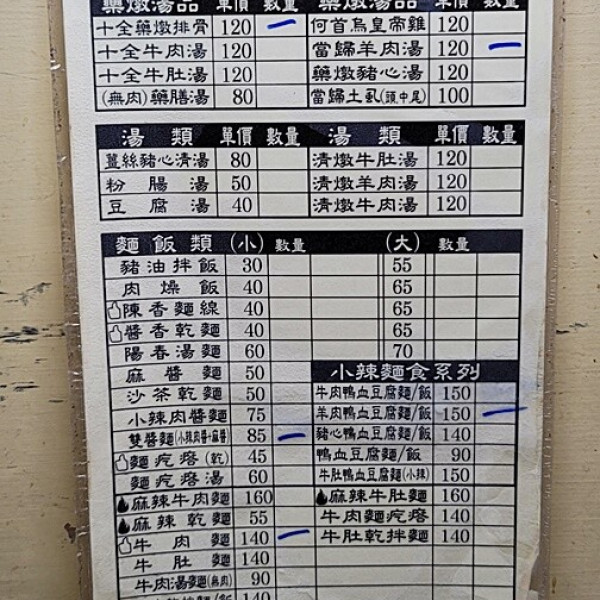 藥燉湯品 單價 數量 藥燉湯品 單價 數量
十全藥燉排骨 120 一 何首烏皇帝雞 120
十全牛肉湯 120 當歸羊肉湯 120 一
十全牛肚湯 120 藥燉豬心湯 120
(無肉)藥膳湯 80 當歸土虱(頭.中.尾) 100
湯類 單價 數量 湯類 單價 數量
薑絲豬心清湯 80 清燉牛肚湯 120
粉腸湯 50 清燉羊肉湯 120
豆腐湯 40 清燉牛肉湯 120
麵飯類 (小) 數量 (大) 數量
豬油拌飯 30 55
肉燥飯 40 65
陳香麵線 40 65
醬香乾麵 40 65
陽春湯麵 60 70
麻醬麵 50 小辣麵食系列
沙茶乾麵 50 牛肉鴨血豆腐麵/飯 150
小辣肉醬麵 75 羊肉鴨血豆腐麵/飯 150 一
雙醬麵(小辣肉醬+麻醬) 85 一 豬心鴨血豆腐麵/飯 140
麵疙瘩(乾) 45 鴨血豆腐麵/飯 90
麵疙瘩湯 60 牛肚鴨血豆腐麵(小辣) 150
麻辣牛肉麵 160 麻辣牛肚麵 160
麻辣乾麵 55 牛肉麵疙瘩 140
牛肉麵 140 一 牛肚乾拌麵 140
牛肚麵 140
牛肉湯麵(無肉) 90
麵/飯 140